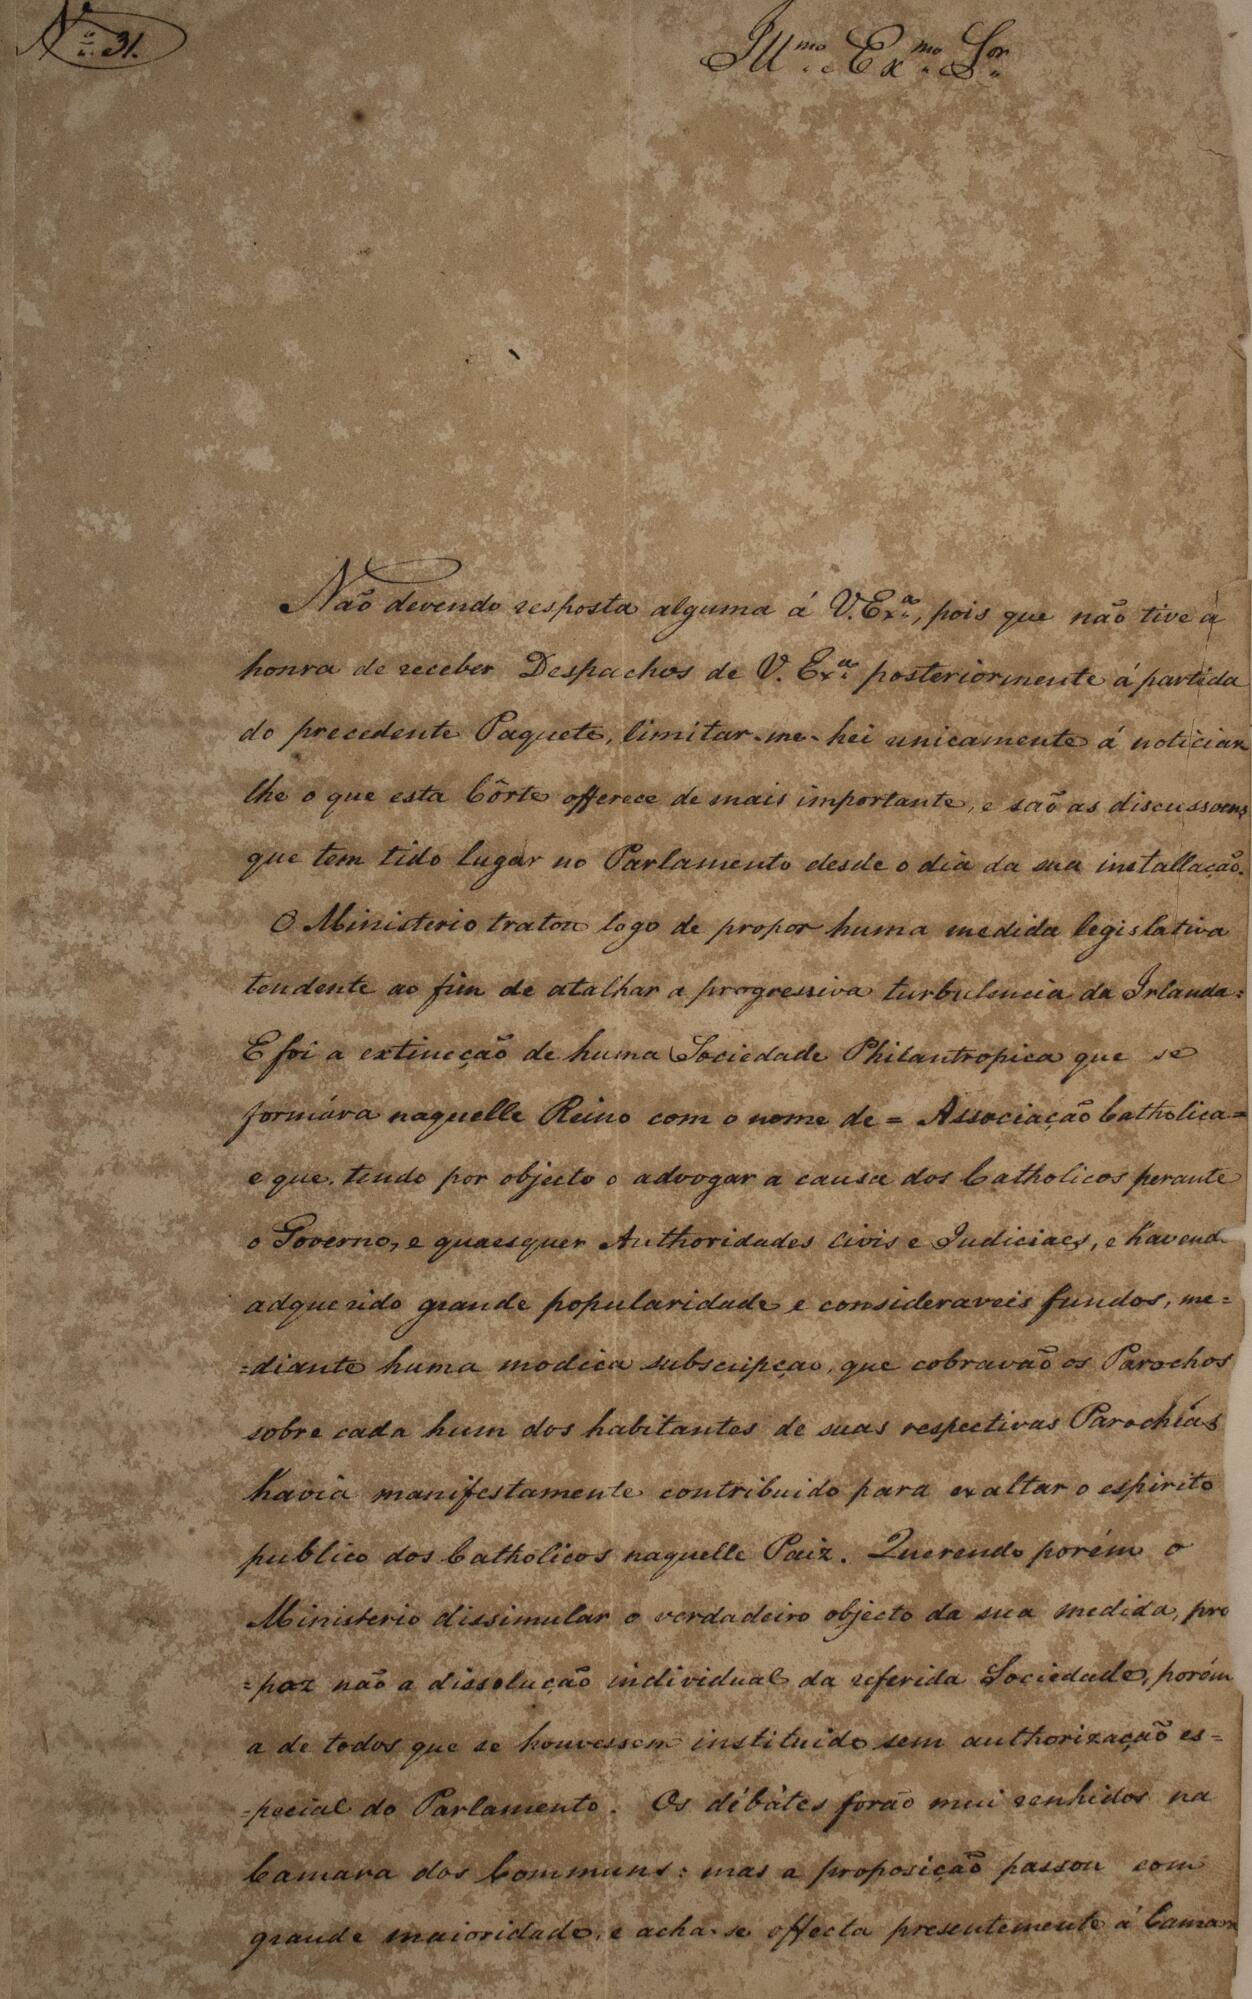 Nº 31.
Illmo. e Exmo. Sor.
Não devendo resposta alguma á V. Exa., pois que não tive a
honra de receber Despachos de V. Exa. posteriormente á partida
do precedente Paquete, limitar-me-hei unicamente á noticiar
lhe o que esta Côrte offerece de mais importante, e saõ as discussoens
que tem tido lugar no Parlamento desde o dia da sua installação.
O Ministerio tratou logo de propor huma medida legislativa
tendente ao fim de atalhar a progressiva turbulencia da Irlanda:
E foi a extincção de huma Sociedade Philantropica que se
formára naquelle Reino com o nome de = Associação Catholica =
e que, tendo por objecto o advogar a causa dos Catholicos perante
o Governo, e quaesquer Authoridades civis e Judiciaes, e havend
adquerido grande popularidade e consideraveis fundos, me=
=diante huma modica subscripçao, que cobravão os Parochos
sobre cada hum dos habitantes de suas respectivas Parochias
havia manifestamente contribuido para exaltar o espirito
publico dos Catholicos naquelle Paiz. Querendo porém o
Ministerio dissimular o verdadeiro objecto da sua medida, pro
=poz não a dissolução individual da referida Sociedade, porém
a de todos que se houvessem instituido sem authorização es=
=pecial do Parlamento. Os débátes forão mui renhidos na
Camara dos Communs: mas a proposição passou com
grande maioridade, e acha-se affecta presentemente á Camar